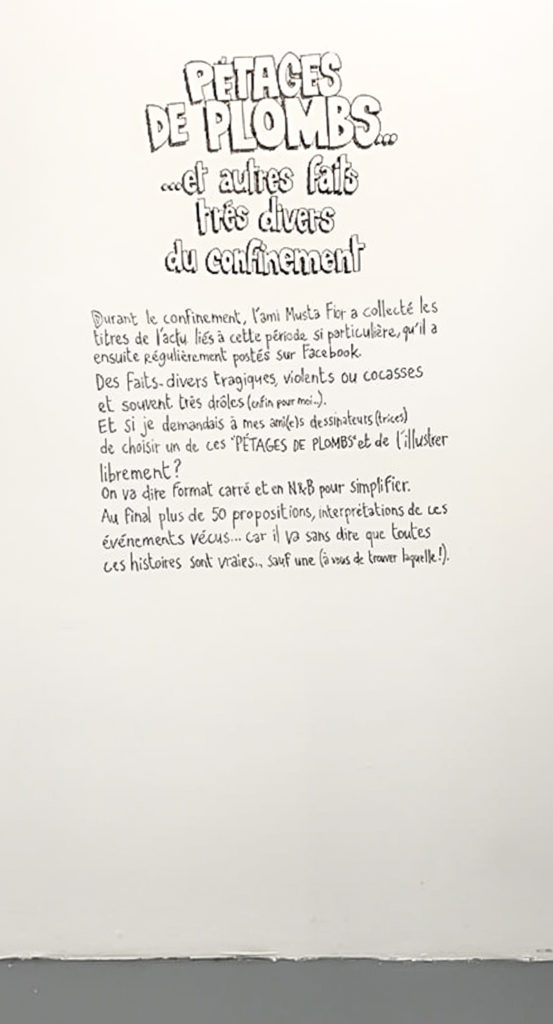 PÉTAGES
DE PLOMBS...
...et autres faits
très divers
du confinement
Durant le confinement, l'ami Musta Fior a collecté les
titres de l'actu liés à cette période si particulière, qu'il a
ensuite régulièrement postés sur Facebook.
Des Faits-divers tragiques, violents ou cocasses
et souvent très drôles (enfin pour moi..).
Et si je demandais à mes ami(e)s dessinateurs (trices)
de choisir un de ces "PÉTAGES DE PLOMBS" et de l'illustrer
librement?
On va dire format carré et en N&B pour simplifier.
Au final plus de 50 propositions, interprétations de ces
événements vécus... car il va sans dire que toutes
ces histoires sont vraies... sauf une (à vous de trouver laquelle!).